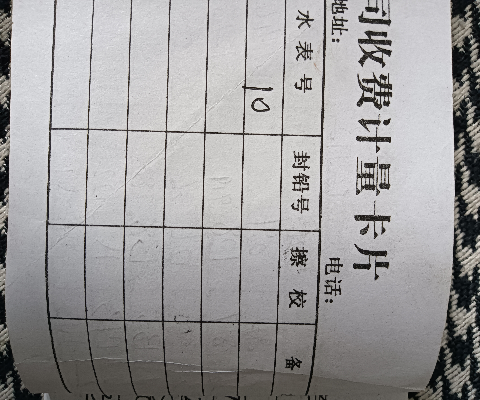 司收费计量卡片
地址： 电话：
水表号 封铅号 擦校 备
10